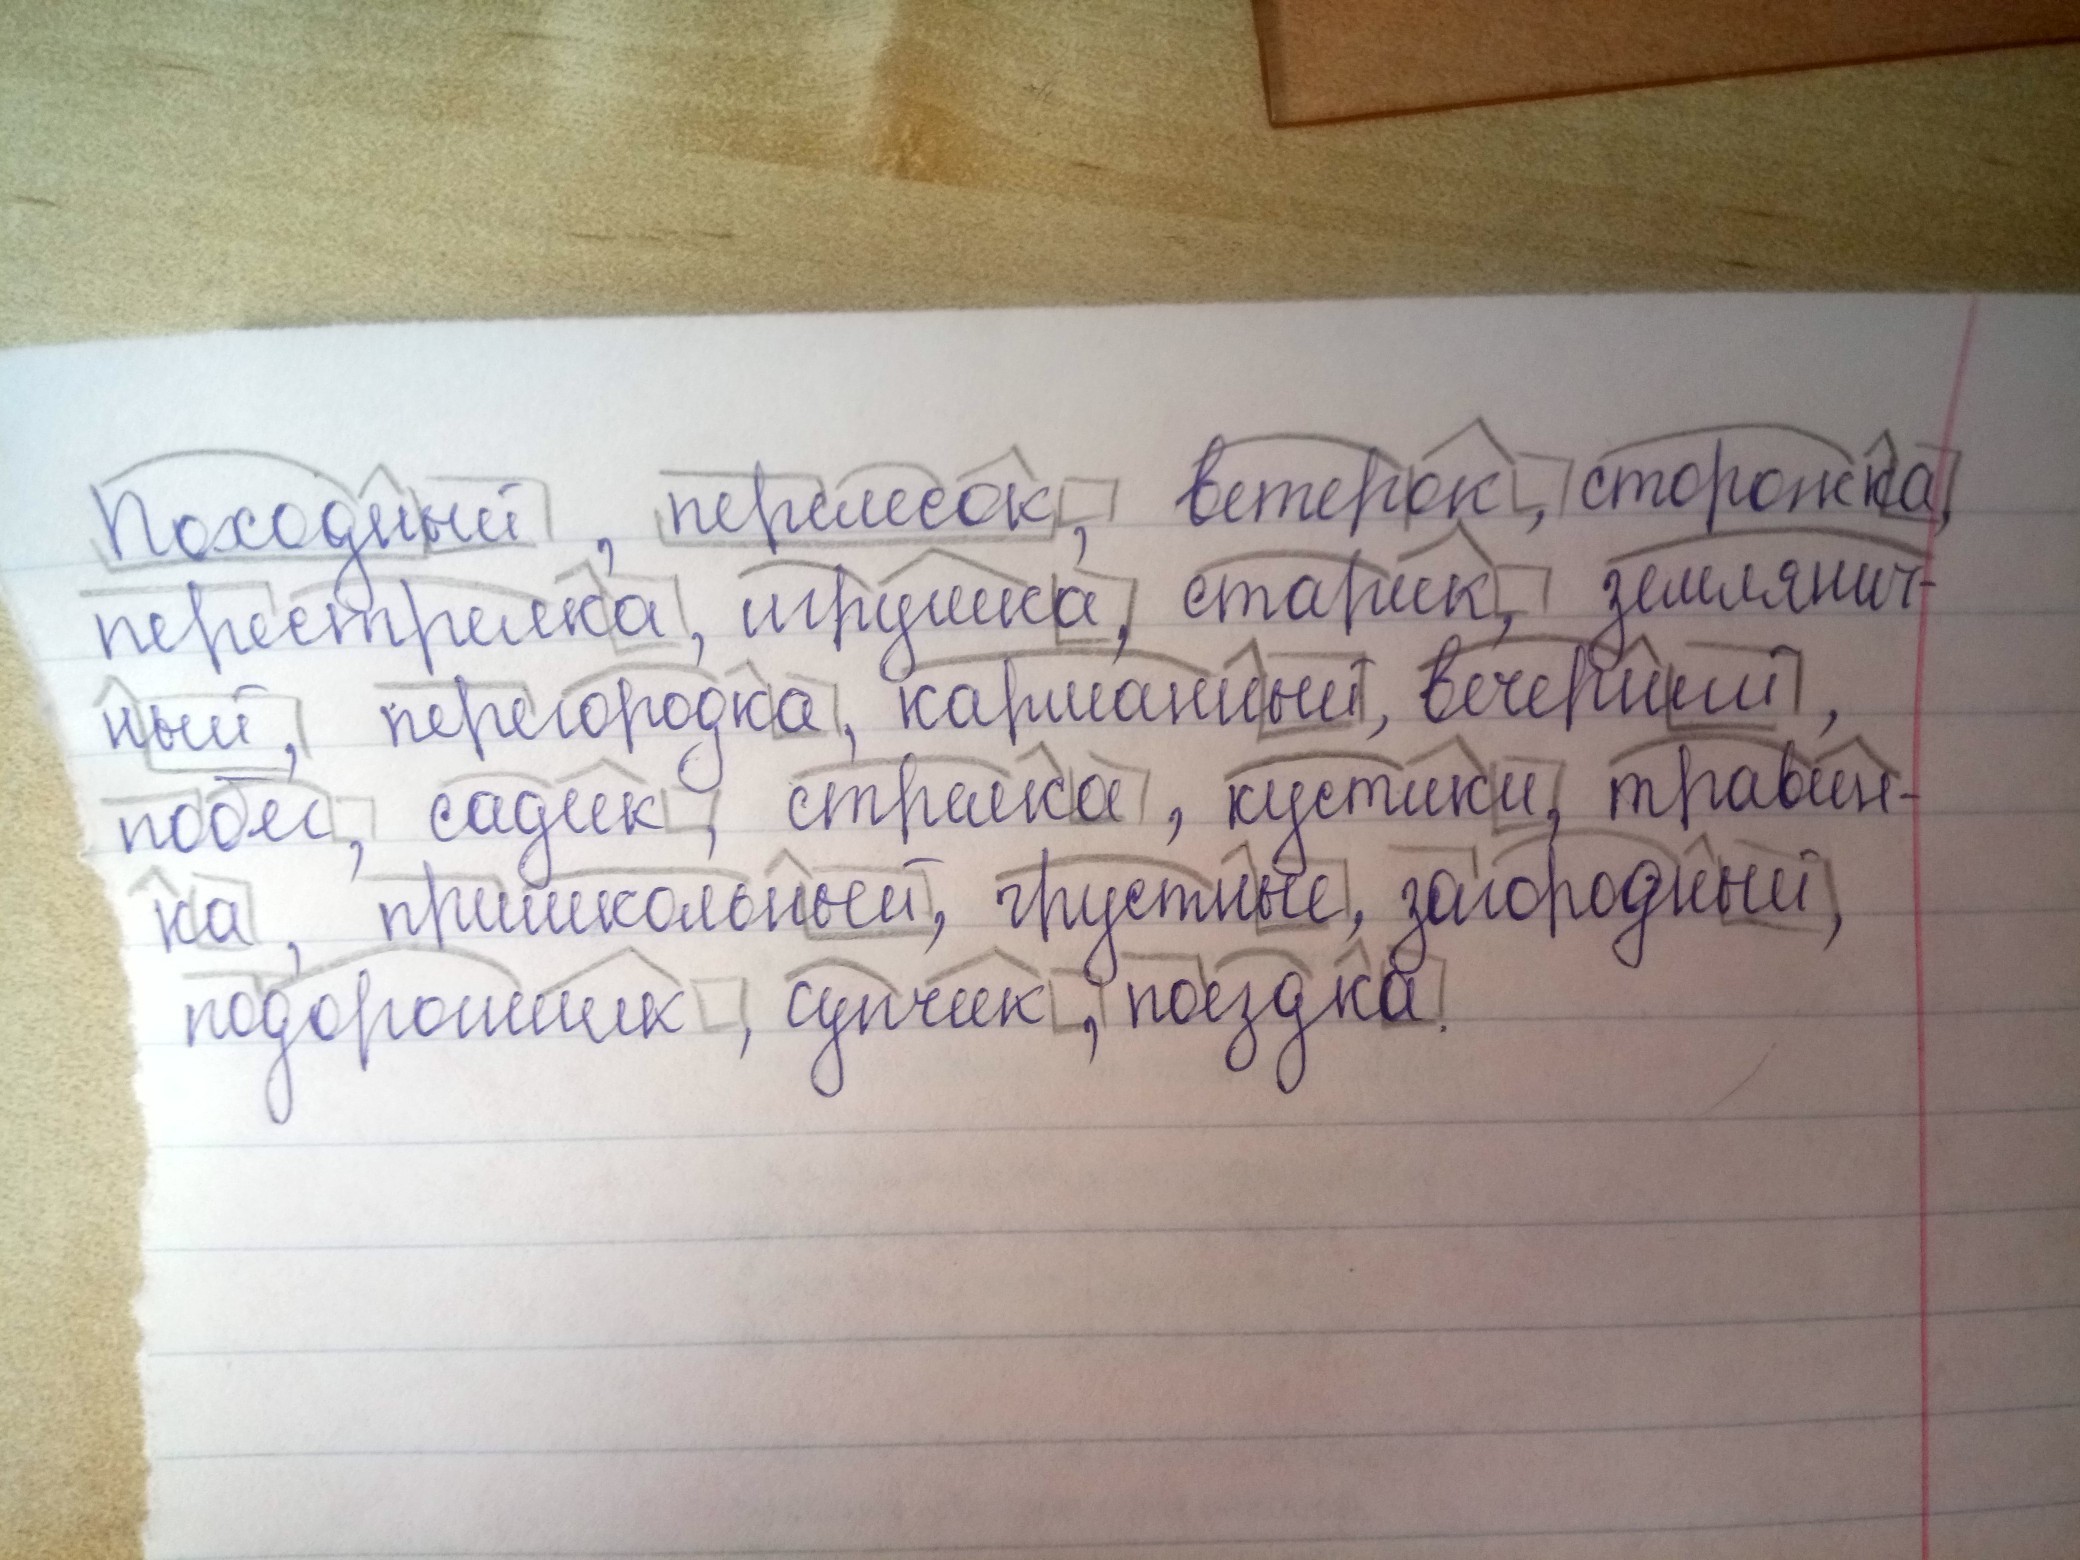 Походный, перелесок, ветерок, сторожка,
перестрелка, игрушка, старик, землянич-
ный, перегородка, карманный, вечерний,
побег, садик, стрелка, кустики, травин-
ка, пришкольный, грустные, загородный,
подорожник, супчик, поездка.